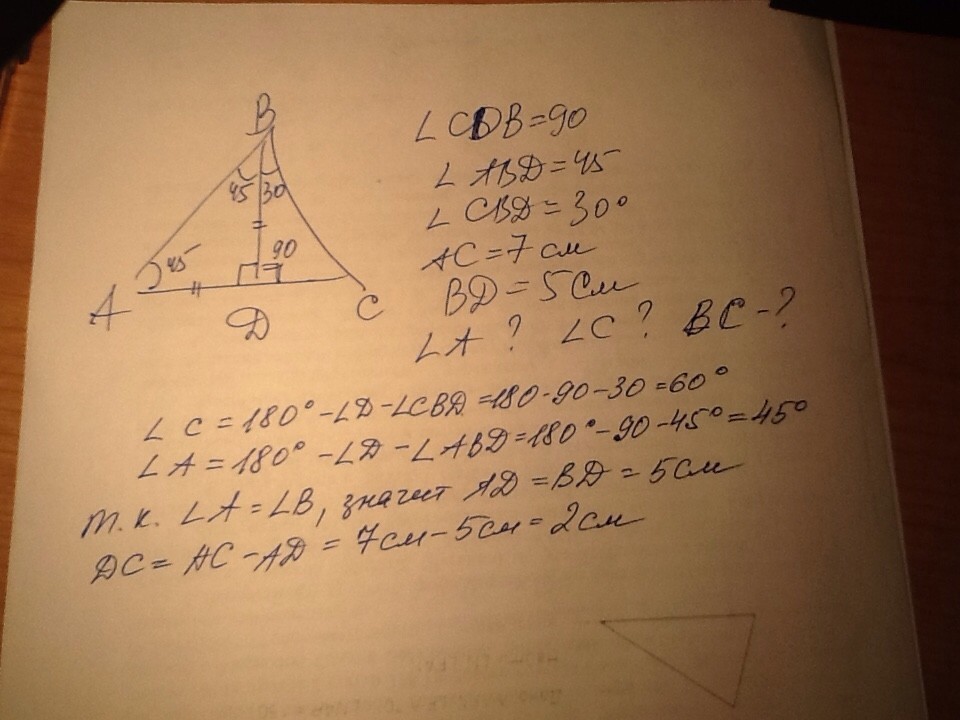 B
45 30
45 90
A D C
∠CDB=90
∠ABD=45
∠CBD=30°
AC=7см
BD=5см
∠A? ∠C? BC-?
∠C=180°-∠D-∠CBD=180-90-30=60°
∠A=180°-∠D-∠ABD=180°-90-45°=45°
т.к. ∠A=∠B, значит AD=BD=5см
DC=AC-AD=7см-5см=2см